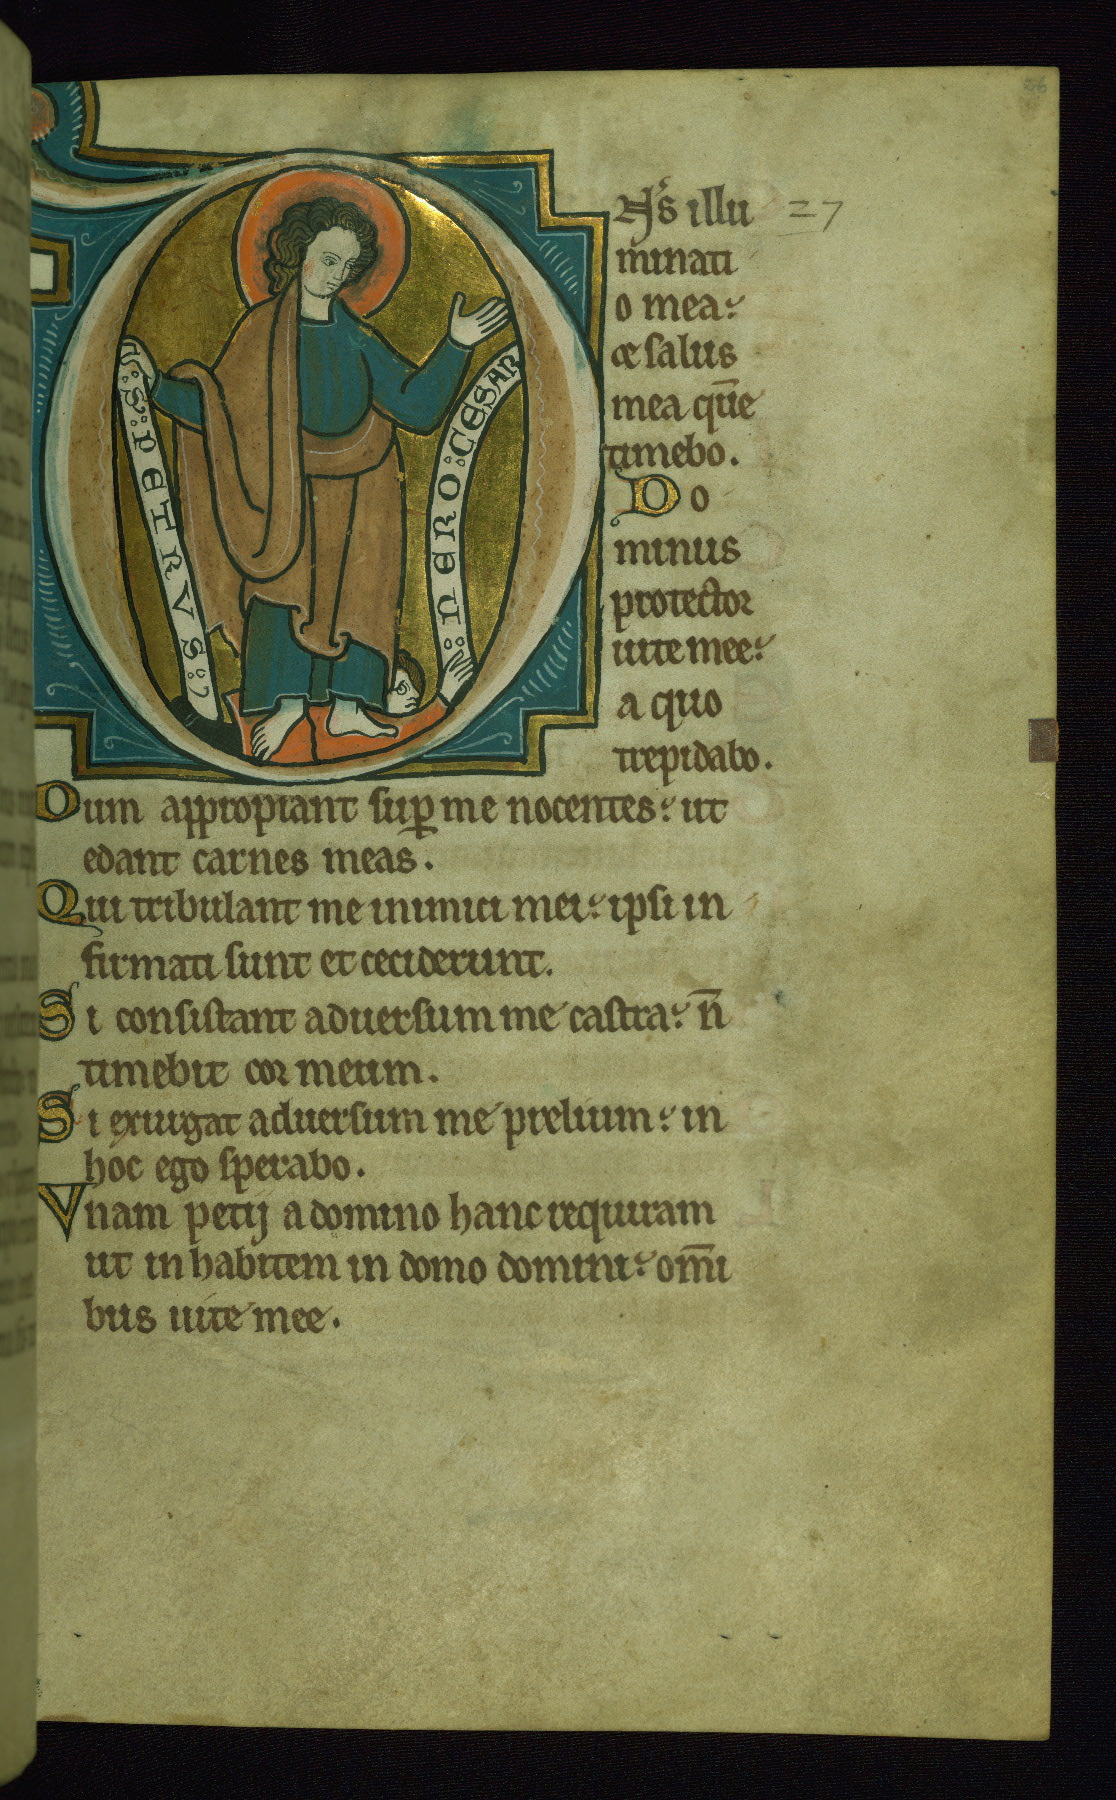 56
S: PETRVS:
: NERO: CESAR
Nſ̄ illu 27
minati
o mea:
⁊ ſalus
mea quē
timebo.
Do
minus
protector
uite mee:
a quo
trepidabo.
Dum appropiant ſuꝑ me nocentes: ut
edant carnes meas.
Qui tribulant me inimici mei: ipſi in
firmati ſunt et ceciderunt.
Si conſiſtant aduerſum me caſtra: n̄
timebit cor meum.
Si exiurgat aduerſum me prelium: in
hoc ego ſperabo.
Vnam petij a domino hanc requiram
ut inhabitem in domo domini: om̄i
bus uite mee.